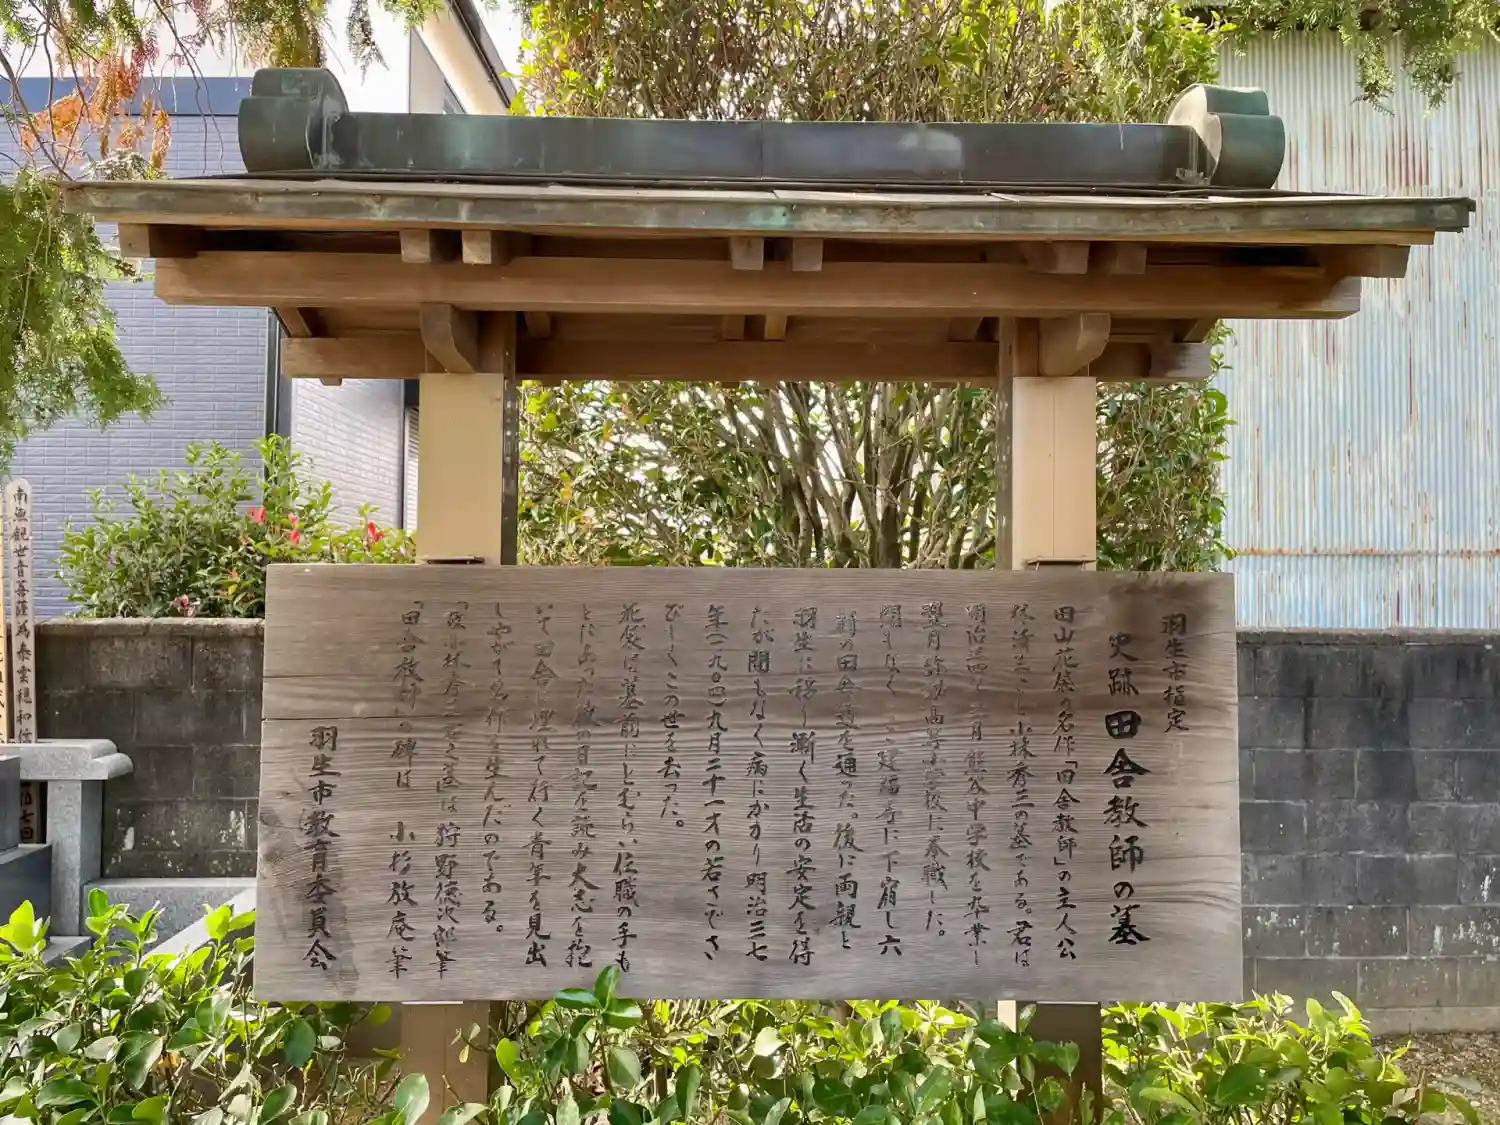 羽生市指定
史跡 田舎教師の墓
田山花袋の名作「田舎教師」の主人公
林清三こと小林秀三の墓である。君は
明治三四年三月熊谷中学校を卒業し
翌月弥勒高等小学校に奉職した。
間もなく 建福寺に下宿し六
粁の田舎道を通った。後に両親と
羽生に移り漸く生活の安定を得
たが間もなく病にかかり明治三七
年(一九〇四)九月二十一才の若さでさ
びしくこの世を去った。
花袋は墓前にとむらい住職の手も
とにあった彼の日記を読み大志を抱
いて田舎に埋れて行く青年を見出
しやがて名作を生んだのである。
「故小林秀三君之墓」は狩野徳次郎筆
「田舎教師」の碑は 小杉放庵筆
羽生市教育委員会
南無観世音菩薩為泰雲穏和信